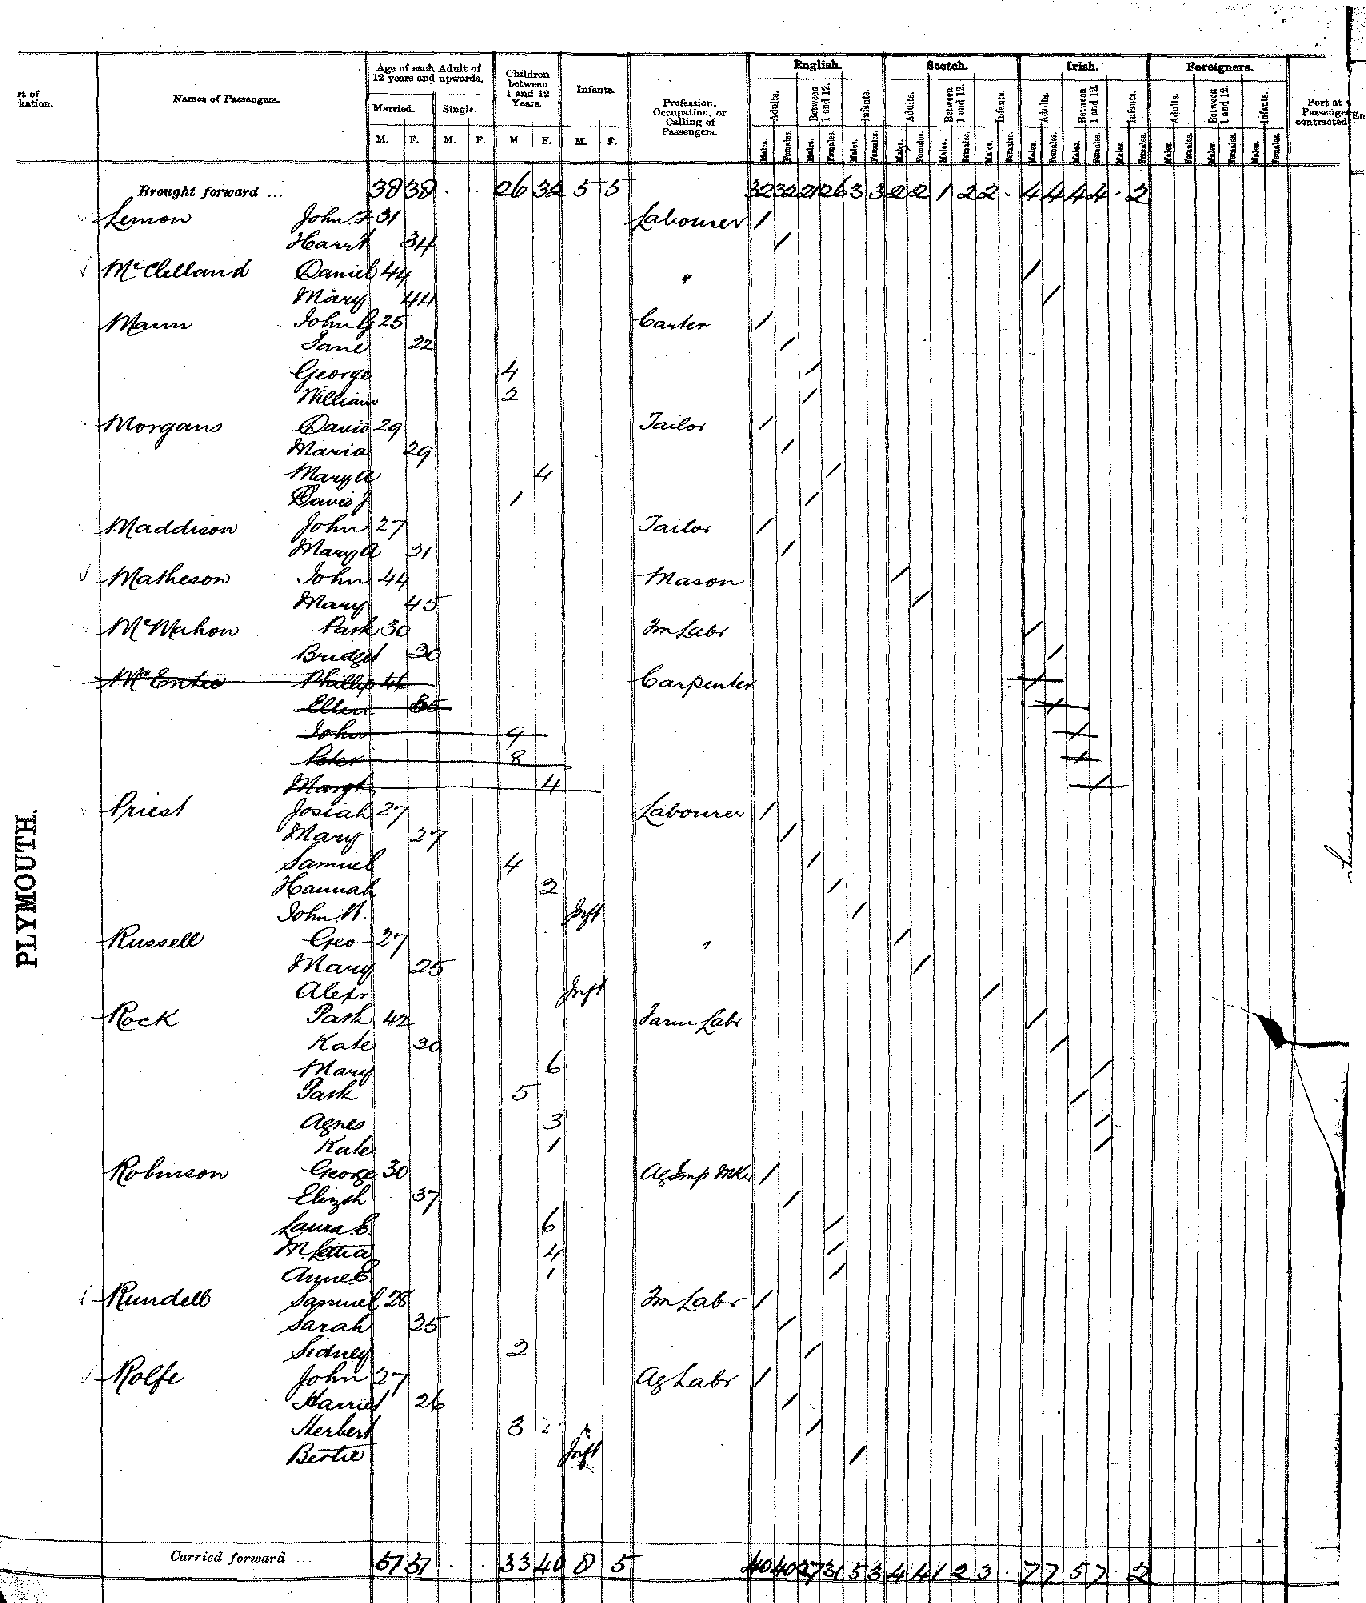 English. Scotch. Irish. Foreigners.
Age of each Adult of 12 years and upwards. Children between 1 and 12 Years. Infants.
rt of kation. Names of Passengers. Married. Single. Profession, Occupation, or Calling of Passengers. Adults. Between 1 and 12. Infants. Adults. Between 1 and 12. Infants. Adults. Between 1 and 12. Infants. Adults. Between 1 and 12. Infants. Port at Passenger contracted
M. F. M. F. M F. M. F. Males. Females. Males. Females. Males. Females. Males. Females. Males. Females. Males. Females. Males. Females. Males. Females. Males. Females. Males. Females. Males. Females. Males. Females.
Brought forward ... 38 38 26 32 5 5 32 32 21 26 3 3 2 2 1 2 2 4 4 4 4 2
Lemon John 31 Labourer /
Harrt 34 /
McClelland Daniel 44 " /
Mary 44 /
Mann John G 25 Carter /
Jane 22 /
George 4 /
William 2 /
Morgans David 29 Tailor /
Maria 29 /
Mary A 4 /
David J 1 /
Maddison John 27 Tailor /
Mary A 31 /
Matheson John 44 Mason /
Mary 45 /
McMahon Patk 30 Fm Labr /
Bridget 30 /
McEntee Phillip 44 Carpenter /
Ellen /
John 9 /
Peter 8 /
Margt 4 /
Priest Josiah 27 Labourer /
Mary 27 /
Samuel 4 /
Hannah 2 /
John W. Inft /
Russell Geo 27 " /
Mary 25 /
Alexr Inft /
Rock Patk 42 Farm Labr /
Kate 30 /
Mary 6 /
Patk 5 /
Agnes 3 /
Kate 1 /
Robinson George 30 Ag Imp Mkr /
Elizth 37 /
Laura E. 6 /
M. Letia 4 /
Anne E. 1 /
Rundell Samuel 28 Fm Labr /
Sarah 35 /
Sidney 2 /
Rolfe John 27 Ag Labr /
Harriet 26 /
Herbert 3 /
Bertie Inft /
PLYMOUTH.
Carried forward ... 51 51 33 40 8 5 40 40 27 31 5 3 4 4 1 2 3 7 7 5 7 2